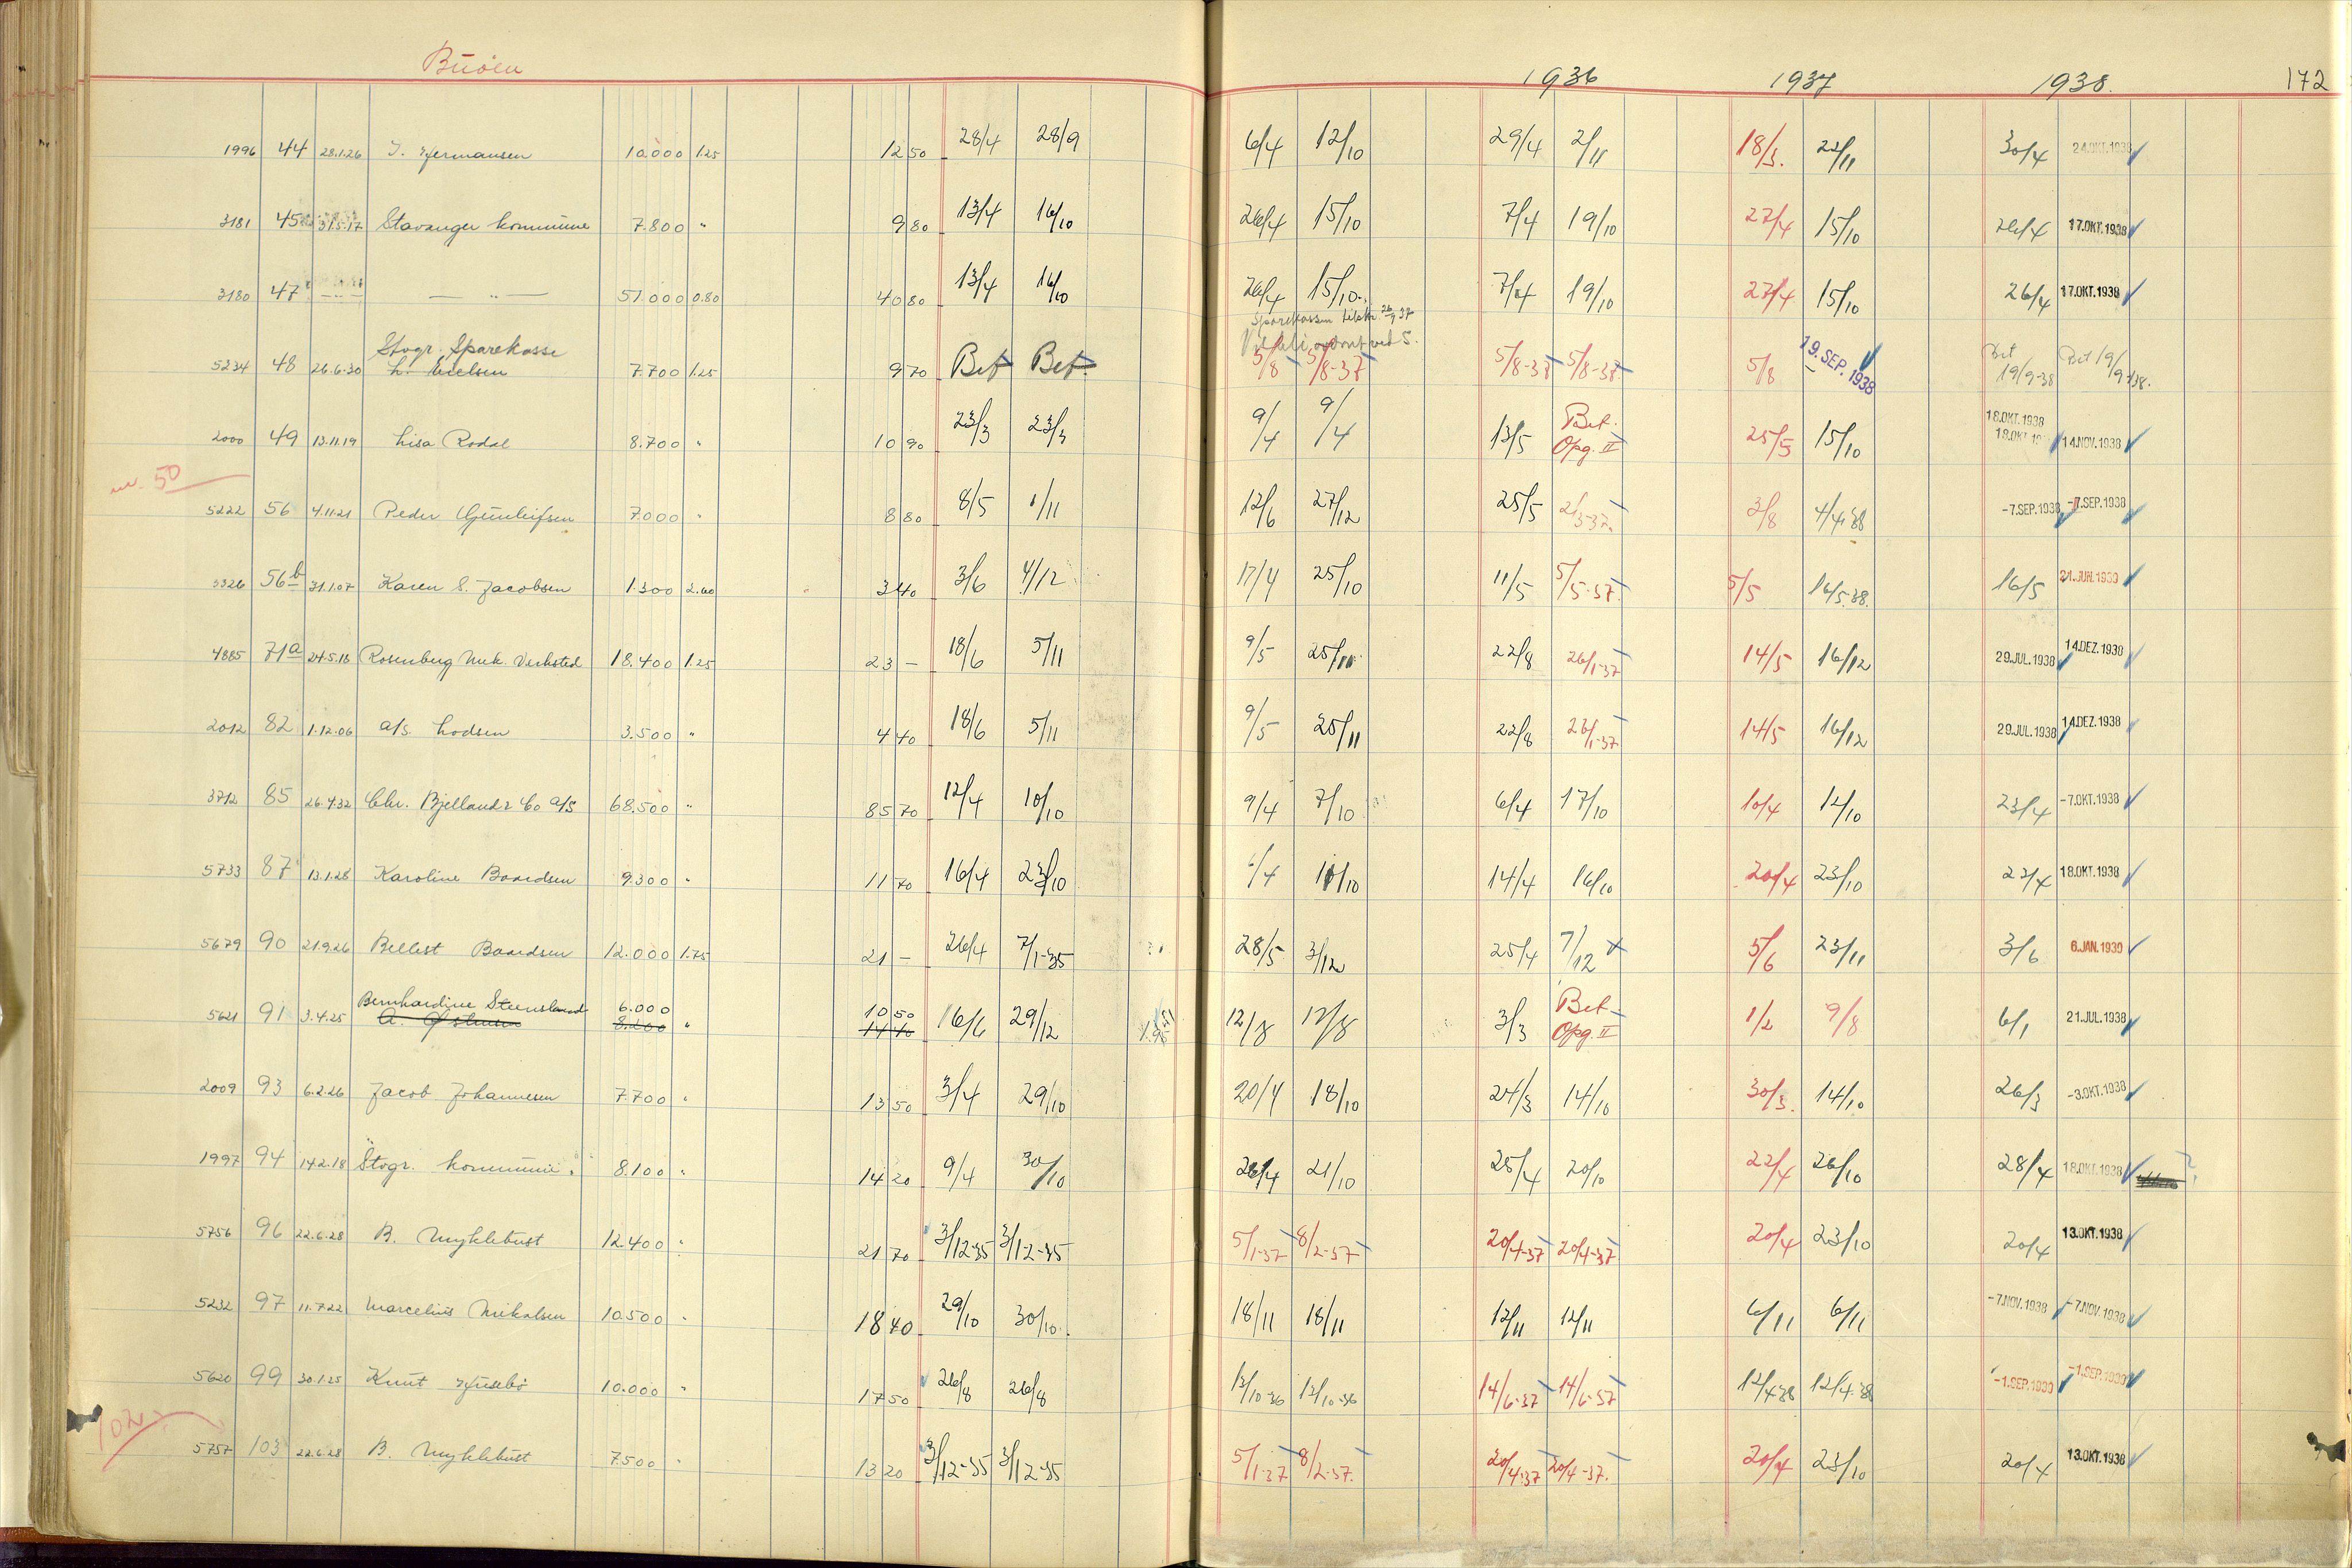 Buöen
1936 1937 1938. 172
1996 44 28.1.26 J. Hermansen 10.000 1.25 12 50 28/4 28/9 6/4 12/10 29/4 2/11 18/3. 22/11 30/4 24.OKT.1938
3181 45 31.5.17 Stavanger kommune 7.800 " 9 80 13/4 16/10 26/4 15/10 7/4 19/10 27/4 15/10 26/4 17.OKT.1938
3180 47 — " — — " — 51.000 0.80 40 80 13/4 16/10 26/4 15/10. 7/4 19/10 27/4 15/10 26/4 17.OKT.1938
Sparekassen
Stvgr. Sparekasse
5234 48 26.6.30 L. Nielsen 7.700 1.25 9 70 Bet Bet. 5/8 5/8-37 5/8-37 5/8-37 5/8 19.SEP.1938 Bet 19/9-38 Bet 19/9-38.
2000 49 13.11.19 Lisa Rodal 8.700 " 10 90 23/3 23/3 9/4 9/4 13/5 Bet. Opg. II 25/5 15/10 18.OKT.1938 18.OKT.19 14.NOV.1938
50
5222 56 4.11.21 Peder Gunleifsen 7.000 " 8 80 8/5 1/11 12/6 27/12 25/5 2/3-37. 3/8 4/4.38 -7.SEP.1938 -7.SEP.1938
3326 56b 31.1.07 Karen S. Jacobsen 1.300 2.60 3 40 3/6 4/12 17/4 25/10 11/5 5/5-37. 5/5 16/5.38. 16/5 21.JUN.1939
4885 71a 24.5.18 Rosenberg Mek. Verksted 18.400 1.25 23 — 18/6 5/11 9/5 25/11. 22/8 26/1-37 14/5 16/12 29.JUL.1938 14.DEZ.1938
2012 82 1.12.06 A/S. Lodsen 3.500 " 4 40 18/6 5/11 9/5 25/11 22/8 26/1-37 14/5 16/12 29.JUL.1938 14.DEZ.1938
3712 85 26.4.32 Chr. Bjelland & Co A/S 68.500 " 85 70 12/4 10/10 9/4 7/10 6/4 17/10 10/4 12/10 23/4 -7.OKT.1938
5733 87 13.1.28 Karoline Baardsen 9.300 " 11 70 16/4 23/10 6/4 11/10 14/4 16/10 20/4 23/10 22/4 18.OKT.1938
5679 90 21.9.26 Bellest Baardsen 12.000 1.75 21 — 26/4 7/1-35 28/5 3/12 25/4 7/12 5/6 23/11 3/6 6.JAN.1939
Bernhardine Steensland 6.000 10 50
5621 91 3.4.25 A. Østensen 8.200 " 14 40 16/6 29/12 12/8 12/8 3/3 Bet Opg. II 1/2 9/8 6/1 21.JUL.1938
2009 93 6.2.26 Jacob Johannesen 7.700 " 13 50 3/4 29/10 20/4 18/10 24/3 14/10 30/3. 14/10 26/3 -3.OKT.1938
1997 94 14.2.18 Stvgr. kommune 8.100 " 14 20 9/4 30/10 26/4 21/10 25/4 20/10 22/4 26/10 28/4 18.OKT.1938 ?
5756 96 22.6.28 B. Myklebust 12.400 " 21 70 3/12-35 3/12-35 5/1-37 8/2-37 20/4-37 20/4-37 20/4 23/10 20/4 13.OKT.1938
5232 97 11.7.22 Marcelius Mikalsen 10.500 " 18 40 29/10 30/10. 18/11 18/11 12/11 12/11 6/11 6/11 -7.NOV.1938 -7.NOV.1938
5620 99 30.1.25 Knut Husebø 10.000 " 17 50 26/8 26/8 13/10-36 13/10-36 14/6-37 14/6-37 12/4.38 12/4.38 -1.SEP.1939 -1.SEP.1939
102
5757 103 22.6.28 B. Myklebust 7.500 " 13 20 3/12-35 3/12-35 5/1-37 8/2-37. 20/4.37 20/4-37. 20/4 23/10 20/4 13.OKT.1938